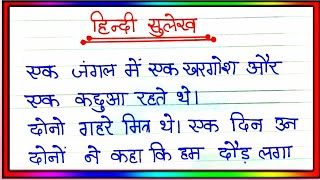 हिन्दी सुलेख
एक जंगल में एक खरगोश और
एक कद्दुआ रहते थे।
दोनो गहरे मित्र थे। एक दिन उन
दोनों ने कहा कि हम दौड़ लगा